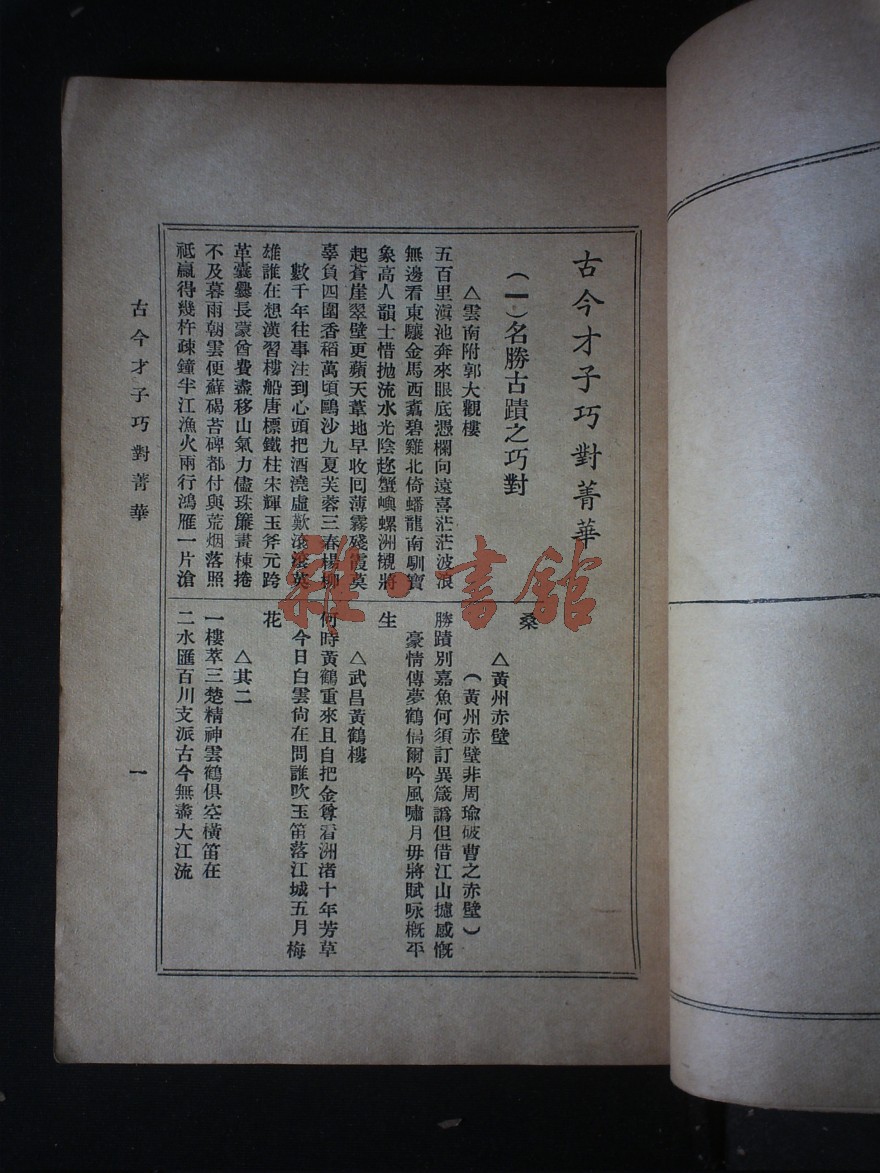 古今才子巧對菁華
(一)名勝古蹟之巧對
△雲南附郭大觀樓
五百里滇池奔來眼底憑欄向遠喜茫茫波浪
無邊看東驤金馬西翥碧雞北倚蟠龍南馴寶
象高人韻士惜拋流水光陰趂蟹嶼螺洲襯將
起蒼崖翠壁更蘋天葦地早收回薄霧殘霞莫
辜負四圍香稻萬頃鷗沙九夏芙蓉三春楊柳
數千年往事注到心頭把酒澆虛歎滾滾英
雄誰在想漢習樓船唐標鐵柱宋輝玉斧元跨
革囊爨長蒙酋費盡移山氣力儘珠簾畫棟捲
不及暮雨朝雲便蘚碣苔碑都付與荒烟落照
祇贏得幾杵疎鐘半江漁火兩行鴻雁一片滄
桑
△黃州赤壁
(黃州赤壁非周瑜破曹之赤壁)
勝蹟別嘉魚何須訂異箴譌但借江山攄感慨
豪情傳夢鶴偶爾吟風嘯月毋將賦咏概平
生
△武昌黃鶴樓
何時黃鶴重來且自把金尊看洲渚十年芳草
今日白雲尙在問誰吹玉笛落江城五月梅
花
△其二
一樓萃三楚精神雲鶴俱空橫笛在
二水匯百川支派古今無盡大江流
古今才子巧對菁華
一
雜·書館